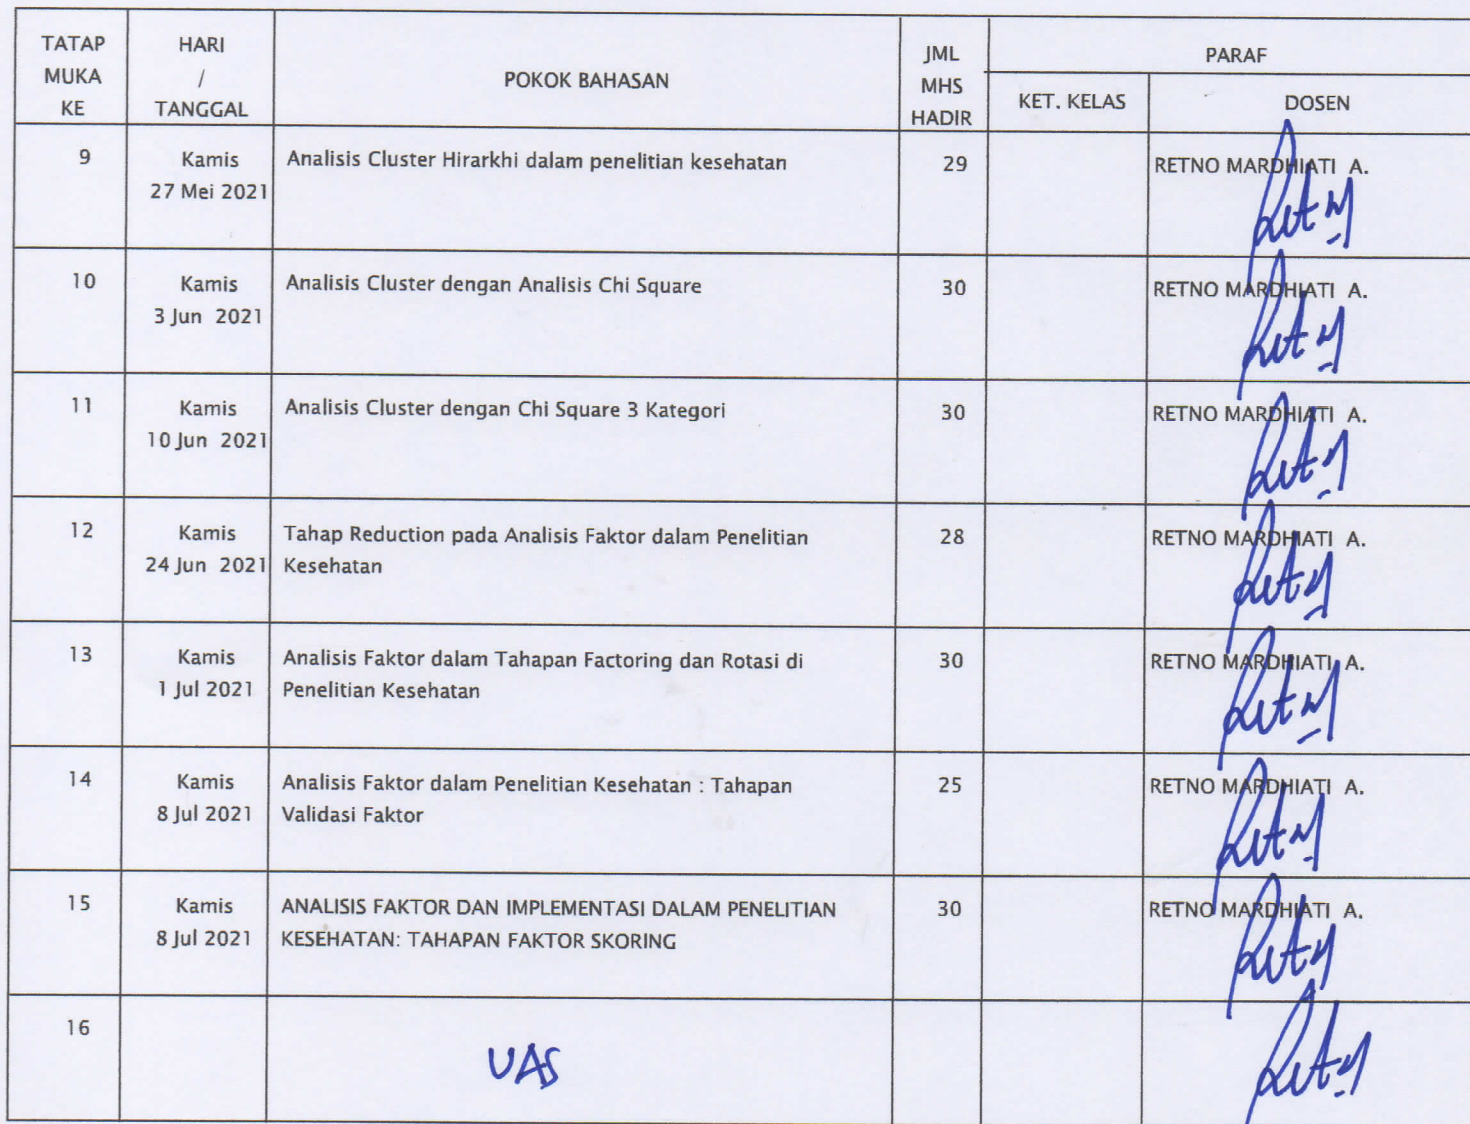 TATAP MUKA KE
HARI / TANGGAL
POKOK BAHASAN
JML MHS HADIR
PARAF
KET. KELAS
DOSEN
9
Kamis
27 Mei 2021
Analisis Cluster Hirarkhi dalam penelitian kesehatan
29
RETNO MARDHIATI A.
10
Kamis
3 Jun 2021
Analisis Cluster dengan Analisis Chi Square
30
RETNO MARDHIATI A.
11
Kamis
10 Jun 2021
Analisis Cluster dengan Chi Square 3 Kategori
30
RETNO MARDHIATI A.
12
Kamis
24 Jun 2021
Tahap Reduction pada Analisis Faktor dalam Penelitian
Kesehatan
28
RETNO MARDHIATI A.
13
Kamis
1 Jul 2021
Analisis Faktor dalam Tahapan Factoring dan Rotasi di
Penelitian Kesehatan
30
RETNO MARDHIATI A.
14
Kamis
8 Jul 2021
Analisis Faktor dalam Penelitian Kesehatan : Tahapan
Validasi Faktor
25
RETNO MARDHIATI A.
15
Kamis
8 Jul 2021
ANALISIS FAKTOR DAN IMPLEMENTASI DALAM PENELITIAN
KESEHATAN: TAHAPAN FAKTOR SKORING
30
RETNO MARDHIATI A.
16
UAS